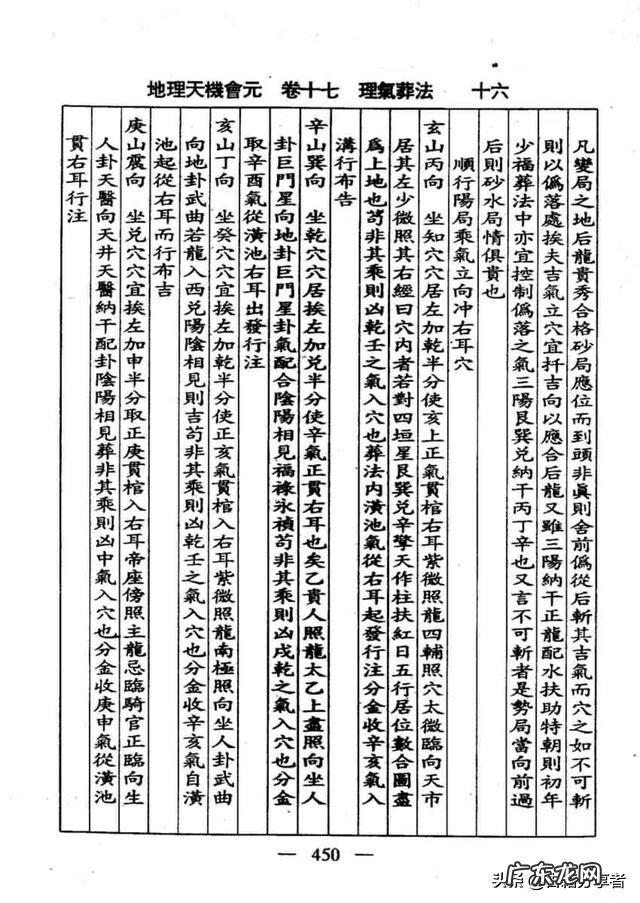 地理天機會元　卷十七　理氣葬法　十六
凡變局之地后龍貴秀合格砂局應位而到頭非眞則舍前僞從后斬其吉氣而穴之如不可斬
則以僞落處挨夫吉氣立穴宜扦吉向以應合后龍又雖三陽納干正龍配水扶助特朝則初年
少福葬法中亦宜控制僞落之氣三陽艮巽兌納干丙丁辛也又言不可斬者是勢局當向前過
后則砂水局情俱貴也
順行陽局乘氣立向冲右耳穴
玄山丙向　坐知穴穴居左加乾半分使亥上正氣貫棺右耳紫微照龍四輔照穴太微臨向天市
居其左少微照其右經曰穴内者若對四垣星艮巽兌辛擎天作柱扶紅日五行居位數合圖盡
爲上地也苟非其乘則凶乾壬之氣入穴也葬法内潢池氣從右耳起發行注分金收辛亥氣入
溝行布告
辛山巽向　坐乾穴穴居挨左加兌半分使辛氣正貫右耳也矣乙貴人照龍太乙上盡照向坐人
卦巨門星向地卦巨門星卦氣配合陰陽相見福祿氷禎苟非其乘則凶戌乾之氣入穴也分金
取辛酉氣從潢池右耳出發行注
亥山丁向　坐癸穴穴宜挨左加乾半分使正亥氣貫棺入右耳紫微照龍南極照向坐人卦武曲
向地卦武曲若龍入西兌陽陰相見則吉苟非其乘則凶乾壬之氣入穴也分金收辛亥氣自潢
池起從右耳而行布吉
庚山震向　坐兌穴穴宜挨左加申半分取正庚貫棺入右耳帝座傍照主龍忌臨騎官正臨向生
人卦天醫向天井天醫納干配卦陰陽相見葬非其乘則凶中氣入穴也分金收庚申氣從潢池
貫右耳行注
— 450 —
头条
分享者
广东龙网